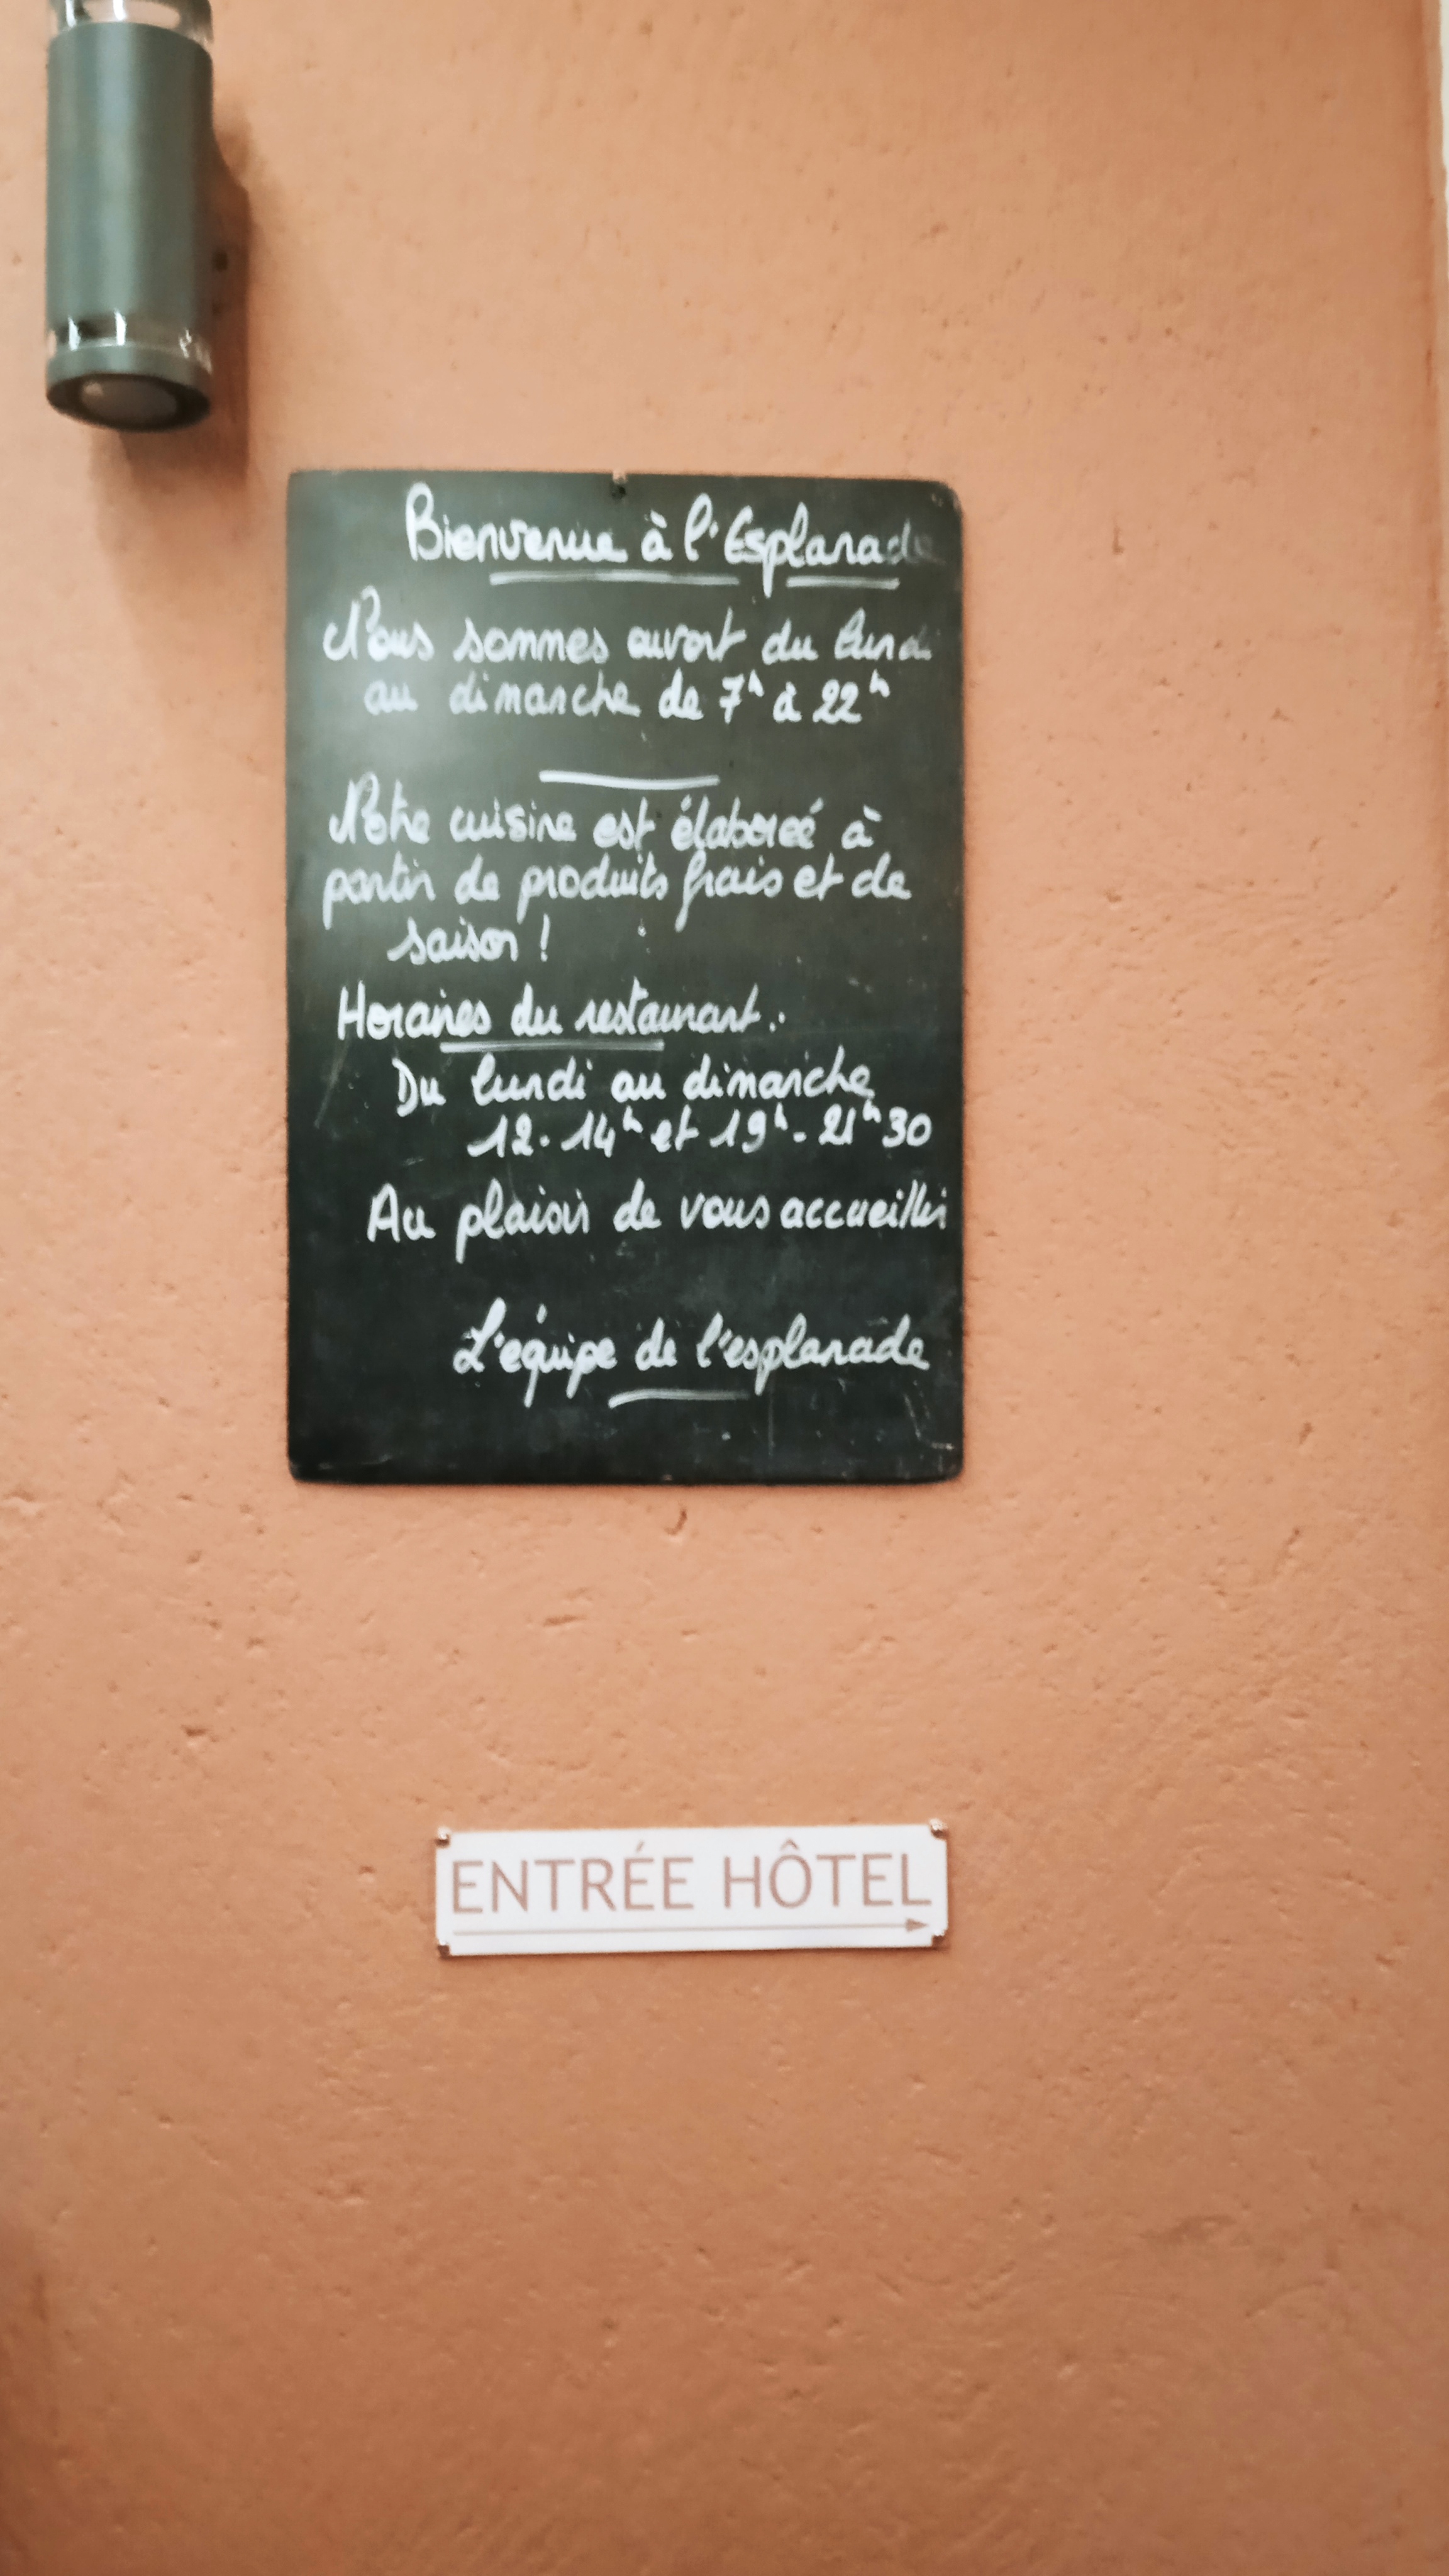 Bienvenue à l'Esplanade
Nous sommes ouvert du lundi
au dimanche de 7h à 22h
Notre cuisine est élaboreé à
partir de produits frais et de
saison !
Horaires du restaurant :
Du lundi au dimanche
12 - 14h et 19h - 21h30
Au plaisir de vous accueillir
L'équipe de l'esplanade
ENTRÉE HÔTEL